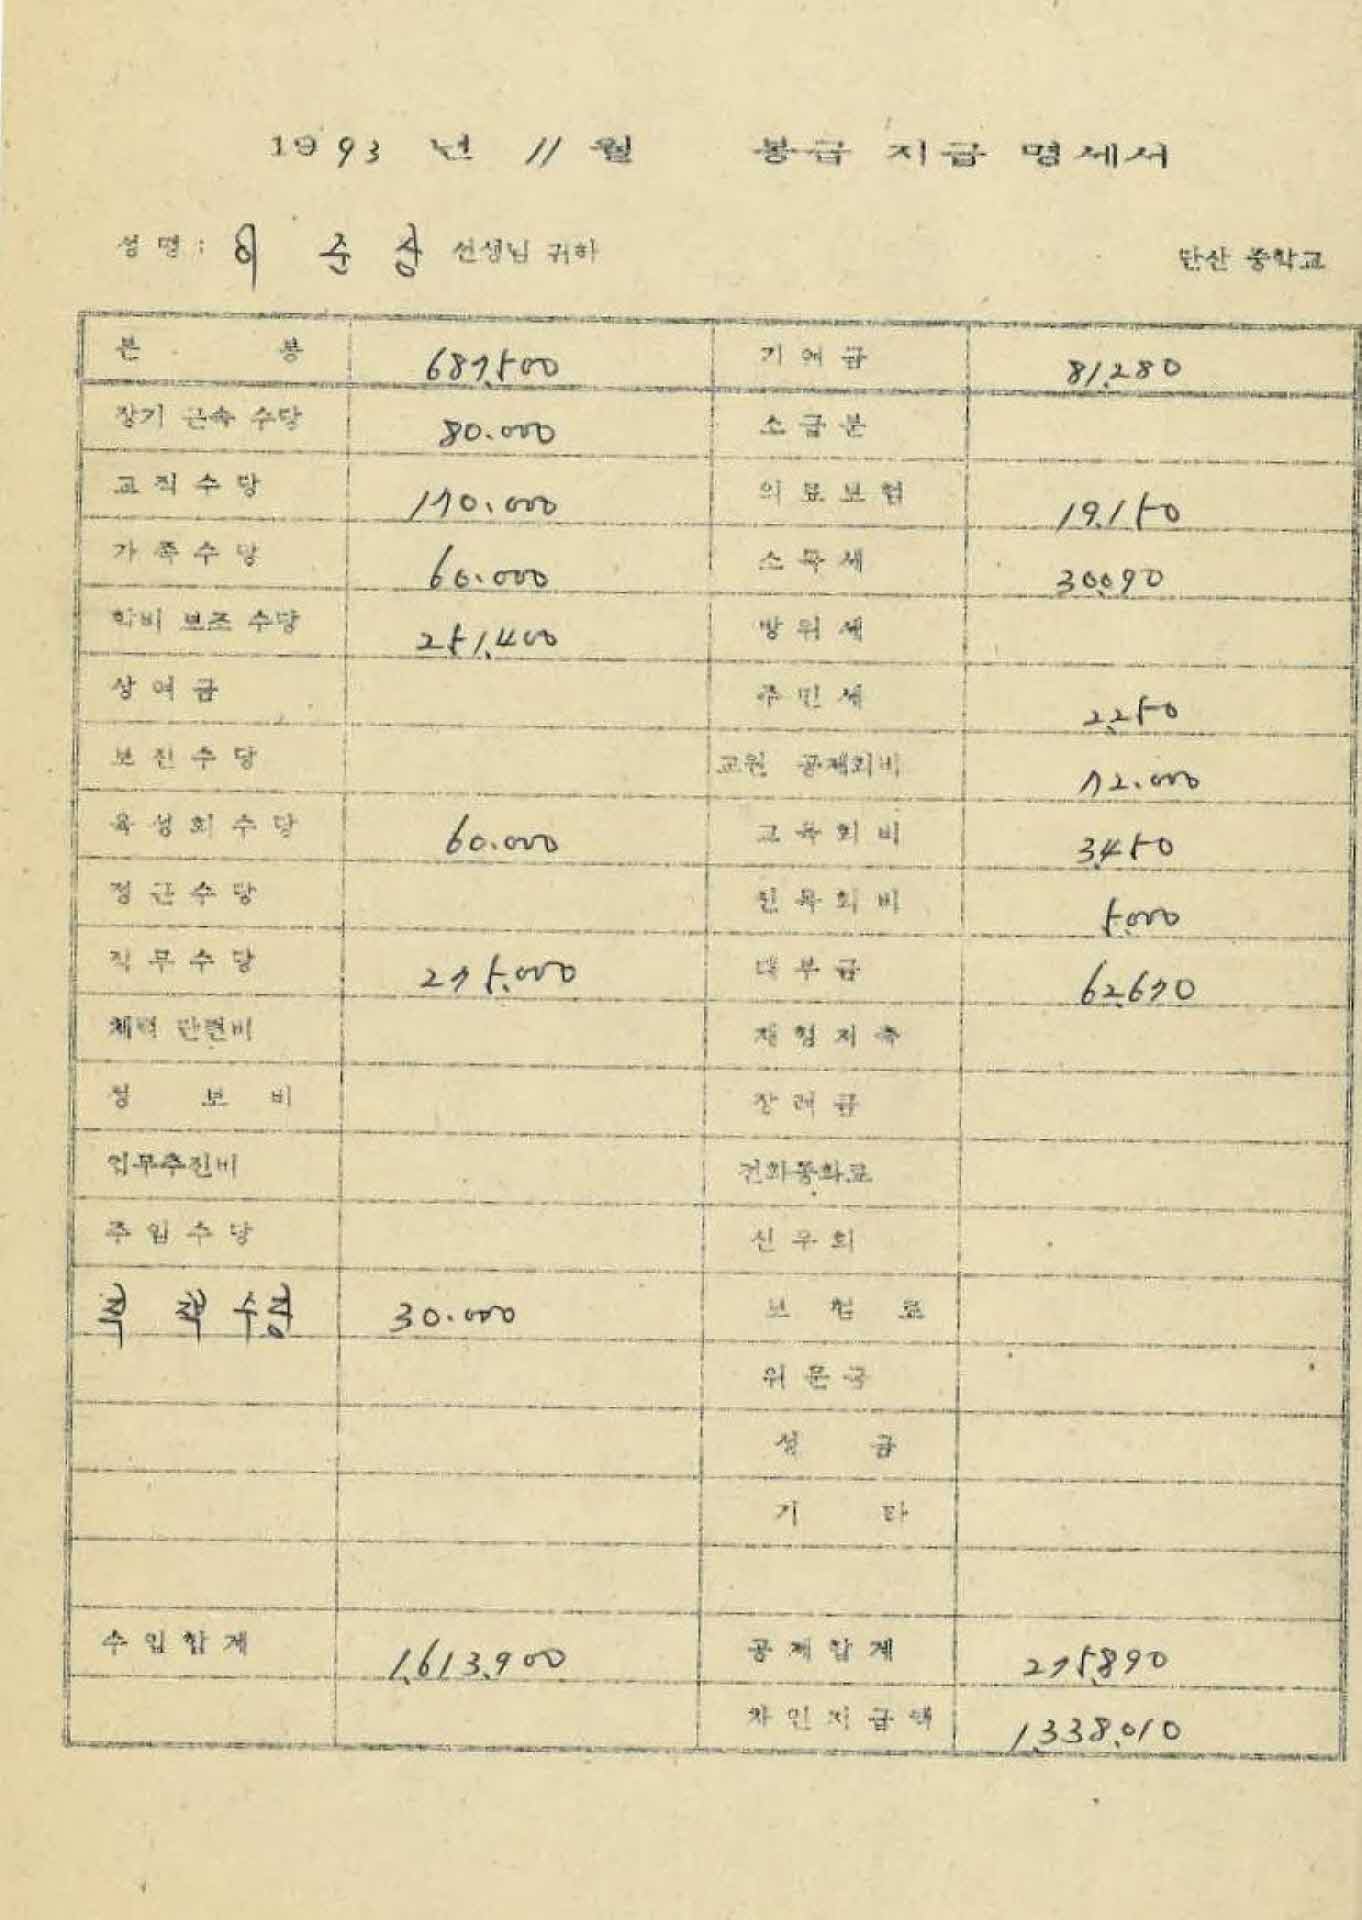 1993 년 11월 봉급 지급 명세서
성명: 이 준 선생님 귀하 단산 중학교
본 봉 687,500 기여금 81,280
장기 근속 수당 80.000 소급분
교직수당 170.000 의료보험 19,150
가족수당 60.000 소득세 30,090
학비 보조 수당 251,400 방위세
상여금 주민세 2,250
보전수당 교원 공제회비 72.000
육성회수당 60.000 교육회비 3,450
정근수당 친목회비 5,000
직무수당 275,000 대부금 62,670
체력 단련비 재형저축
정보비 장려금
업무추진비 전화통화료
주임수당 신우회
수당 30.000 보험료
위문금
성금
기타
수입합계 1,613,900 공제합계 275,890
차인지급액 1,338,010